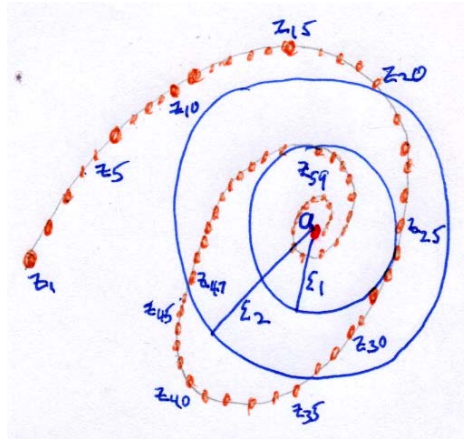 z15
z20
z10
z5
z59
a
z25
z1
z47
ε1
z45
ε2
z30
z40
z35